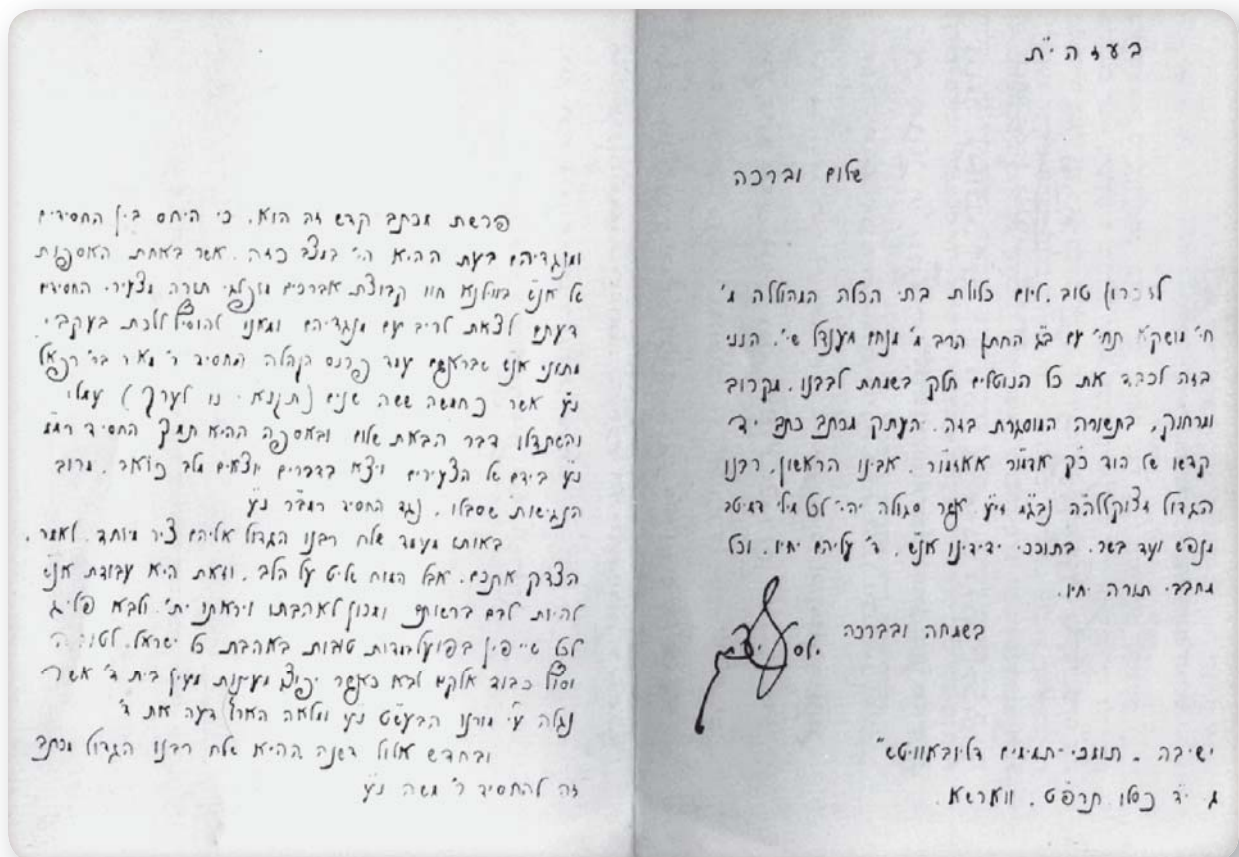 בעזהי"ת
שלום וברכה
לזכרון טוב, ליום כלולת בתי הכלה המהוללה מ'
חי' מושקא תחי' עם ב"ג החתן הרב מ' מנחם מענדל שי', הנני
בזה לכבד את כל הנוטלים חלק בשמחת לבבנו, מקרוב
ומרחוק, בתשורה המוסגרת בזה, העתק מכתב כתב יד
קדשו של הוד כ"ק אדמו"ר אאזמו"ר, אבינו הראשון, רבנו
הגדול זצוקללה"ה נבג"מ זי"ע, אשר סגולה יהי' לכל מילי דמיטב
מנפש ועד בשר, בתוככי ידידינו אנ"ש, ד' עליהם יחיו, וכל
מחבבי תורה יחיו.
בשמחה ובברכה
ישיבה "תומכי-תמימים דליובאוויטש"
ג' י"ד כסלו תרפ"ט, ווארשא.
פרשת מכתב קדש זה הוא, כי היחס בין החסידים
ומנגדיהם בעת ההיא הי' במצב כזה, אשר באחת האספות
של אנ"ש בווילנא חוו קבוצת אברכים מופלגי תורה מצעירי החסידים
דעתם לצאת לריב עם מנגדיהם ומאנו להוסיף ללכת בעקבי
מתוני אנ"ש שבראשם עמד פרנס הקהלה החסיד ר' מאיר בר' רפאל
נ"ע אשר כחמשה ששה שנים (תקנ"א - נו לערך) עמלו
והשתדלו דבר הבאת שלום ובאספה ההיא תמך החסיד רמ"מ
נ"ע בידם של הצעירים ויצא בדברים יוצאים מלב כואב, מרוב
הנגישות שסבלו, נגד החסיד רמב"ר נ"ע
באותו מעמד שלח רבנו הגדול אליהם ציר מיוחד, לאמר,
הצדק אתכם, אבל המוח שליט על הלב, וזאת היא עבודת אנ"ש
להיות לבם ברשותם ומכון לאהבתו ויראתו ית', ולבא פליג
לכל שייפין בפועל מדות טובות באהבת כל ישראל, לטובה
וסוף כבוד אלקים לבא כאשר יפוצו מעינות מעין בית ד' אשר
נגלה ע"י מורנו הבעש"ט נ"ע ומלאה הארץ דעה את ד'
ובחדש אלול דשנה ההיא שלח רבנו הגדול מכתב
זה להחסיד ר' משה נ"ע